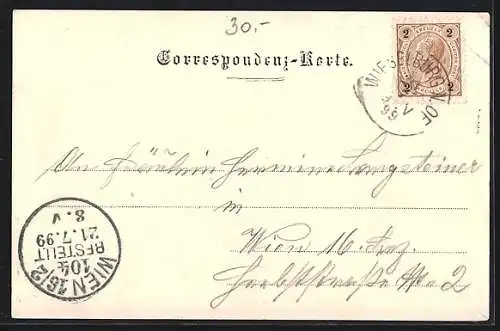 30.-
Correspondenz-Karte.
2 2
2 2
An Fräulein Hermine Langsteiner
in
Wien 16. Bez.
Herbststraße No 2
WIEN 16/2
104
BESTELLT
21.7.99
8.V